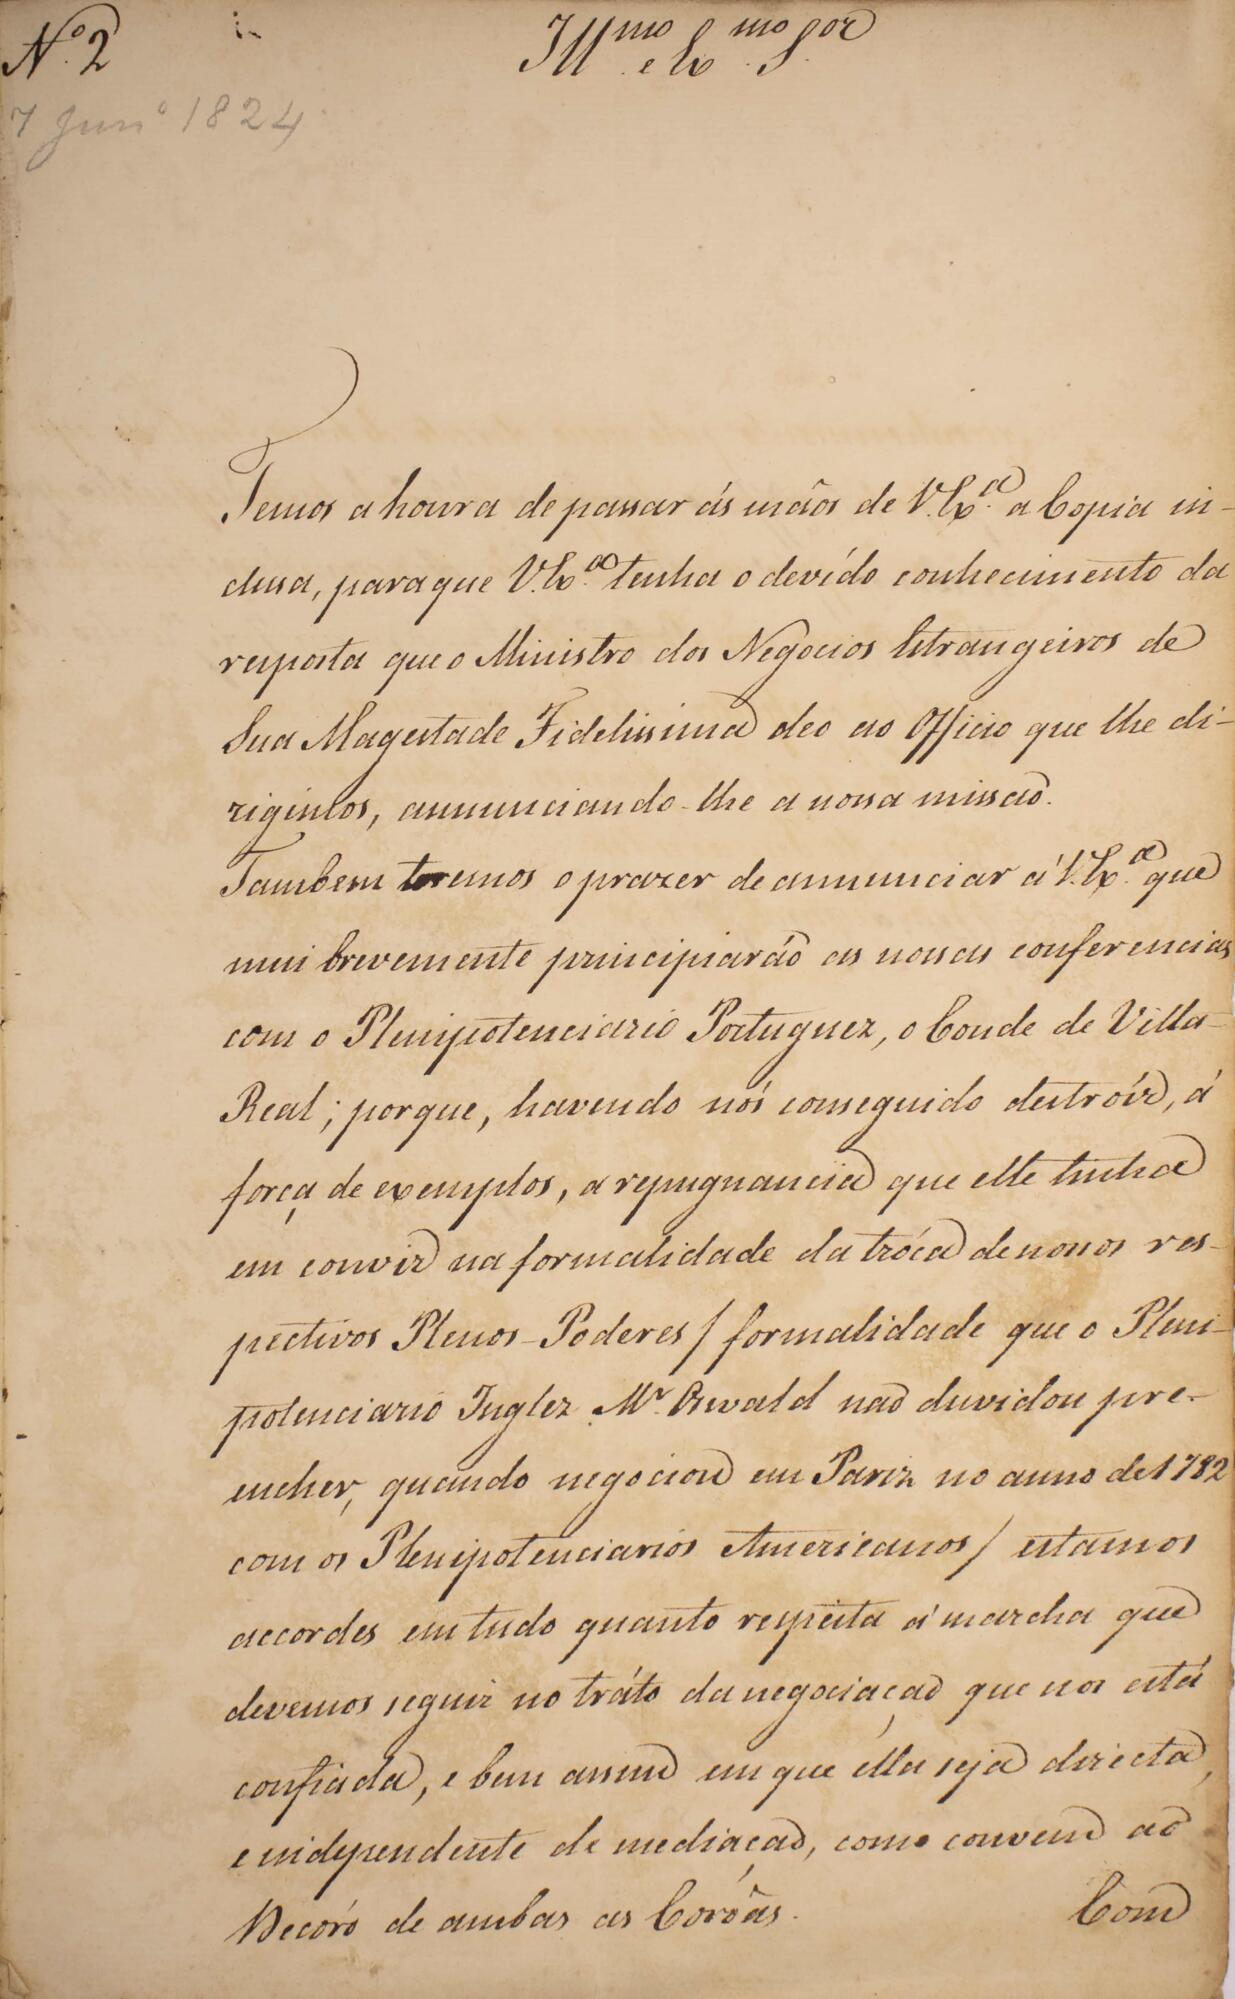 Nº. 2
Ill.mo e Ex.mo S.or
7 Junº 1824
Temos a honra de passar ás mãos de V. Ex.a a Copia in-
clusa, para que V. Ex.a tenha o devído conhecimento da
resposta que o Ministro dos Negocios Estrangeiros de
Sua Magestade Fidelissima deo ao Officio que lhe di-
rigímos, annunciando-lhe a nossa missaõ.
Tambem temos o prazer de annunciar á V. Ex.a que
mui brevemente principiaráõ as nossas conferencias
com o Plenipotenciario Portuguez, o Conde de Villa-
Real; porque, havendo nós conseguido destroír, á
força de exemplos, a repugnancia que elle tinha
em convir na formalidade da tróca de nossos res-
pectivos Plenos-Poderes / formalidade que o Pleni-
potenciario Inglez Mr. Oswald naõ duvidou pre-
encher, quando negociou em Pariz no anno de 1782
com os Plenipotenciarios Americanos / estamos
accordes em tudo quanto respeita á marcha que
devemos seguir no tráto da negociaçaõ que nos está
confiada, e bem assim em que élla seja directa,
e independente de mediaçaõ, como convem ao
Decóro de ambas as Corôas.
Com